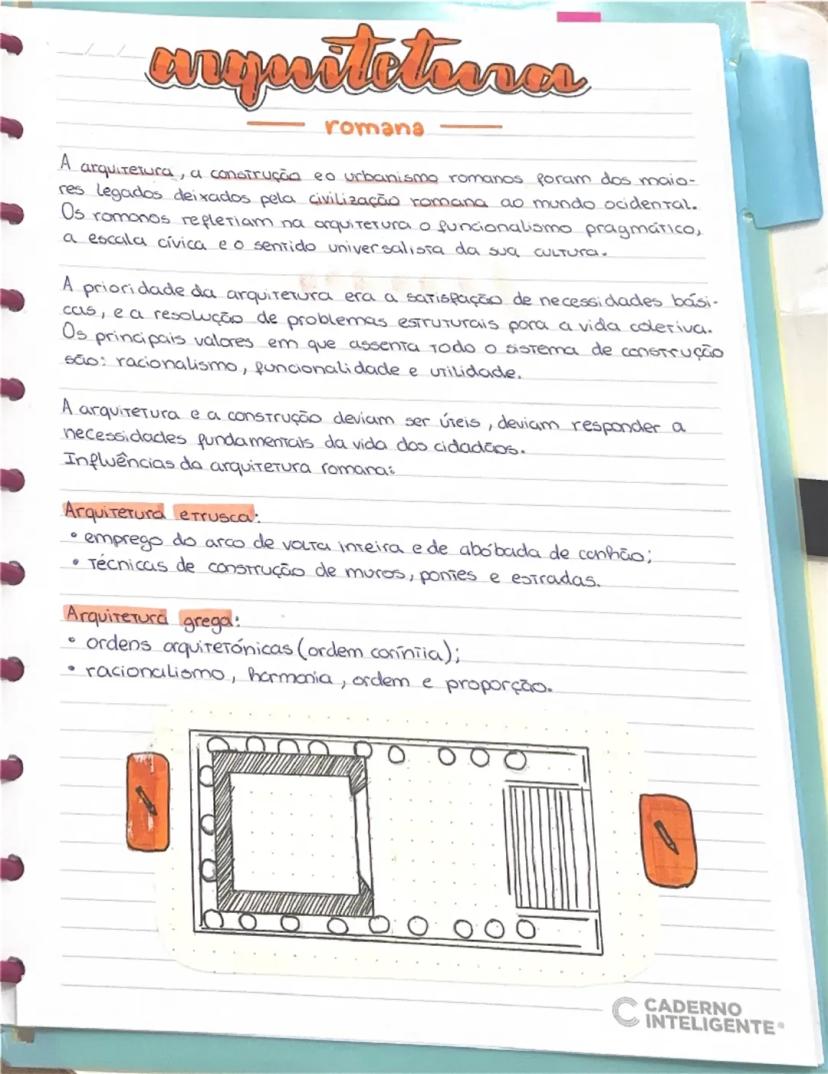 arquitetura
romana
A arquitetura, a construção e o urbanismo romanos foram dos maio-
res legados deixados pela civilização romana ao mundo ocidental.
Os romanos refletiam na arquitetura o funcionalismo pragmático,
a escala cívica e o sentido universalista da sua cultura.
A prioridade da arquitetura era a satisfação de necessidades bási-
cas, e a resolução de problemas estruturais para a vida coletiva.
Os principais valores em que assenta todo o sistema de construção
são: racionalismo, funcionalidade e utilidade.
A arquitetura e a construção deviam ser úteis, deviam responder a
necessidades fundamentais da vida dos cidadãos.
Influências da arquitetura romana:
Arquitetura etrusca:
• emprego do arco de volta inteira e de abóbada de canhão;
• técnicas de construção de muros, pontes e estradas.
Arquitetura grega:
• ordens arquitetónicas (ordem coríntia);
• racionalismo, harmonia, ordem e proporção.
CADERNO
INTELIGENTE®